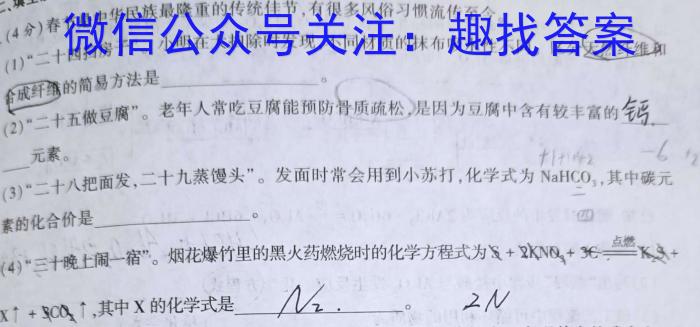 (4分)春节是中华民族最隆重的传统佳节,有很多风俗习惯流传至今。
微信公众号关注：趣找答案
(1)“二十四扫房
合成纤维的简易方法是 。
(2)“二十五做豆腐”。老年人常吃豆腐能预防骨质疏松,是因为豆腐中含有较丰富的 钙
元素。
+1+1+4-2 -6
(3)“二十八把面发,二十九蒸馒头”。发面时常会用到小苏打,化学式为NaHCO₃,其中碳元
素的化合价是 。
四
(4)“三十晚上闹一宿”。烟花爆竹里的黑火药燃烧时的化学方程式为S + 2KNO₃ + 3C 点燃 K₂S +
X↑ + 3CO₂↑,其中X的化学式是 N₂. 。 2N